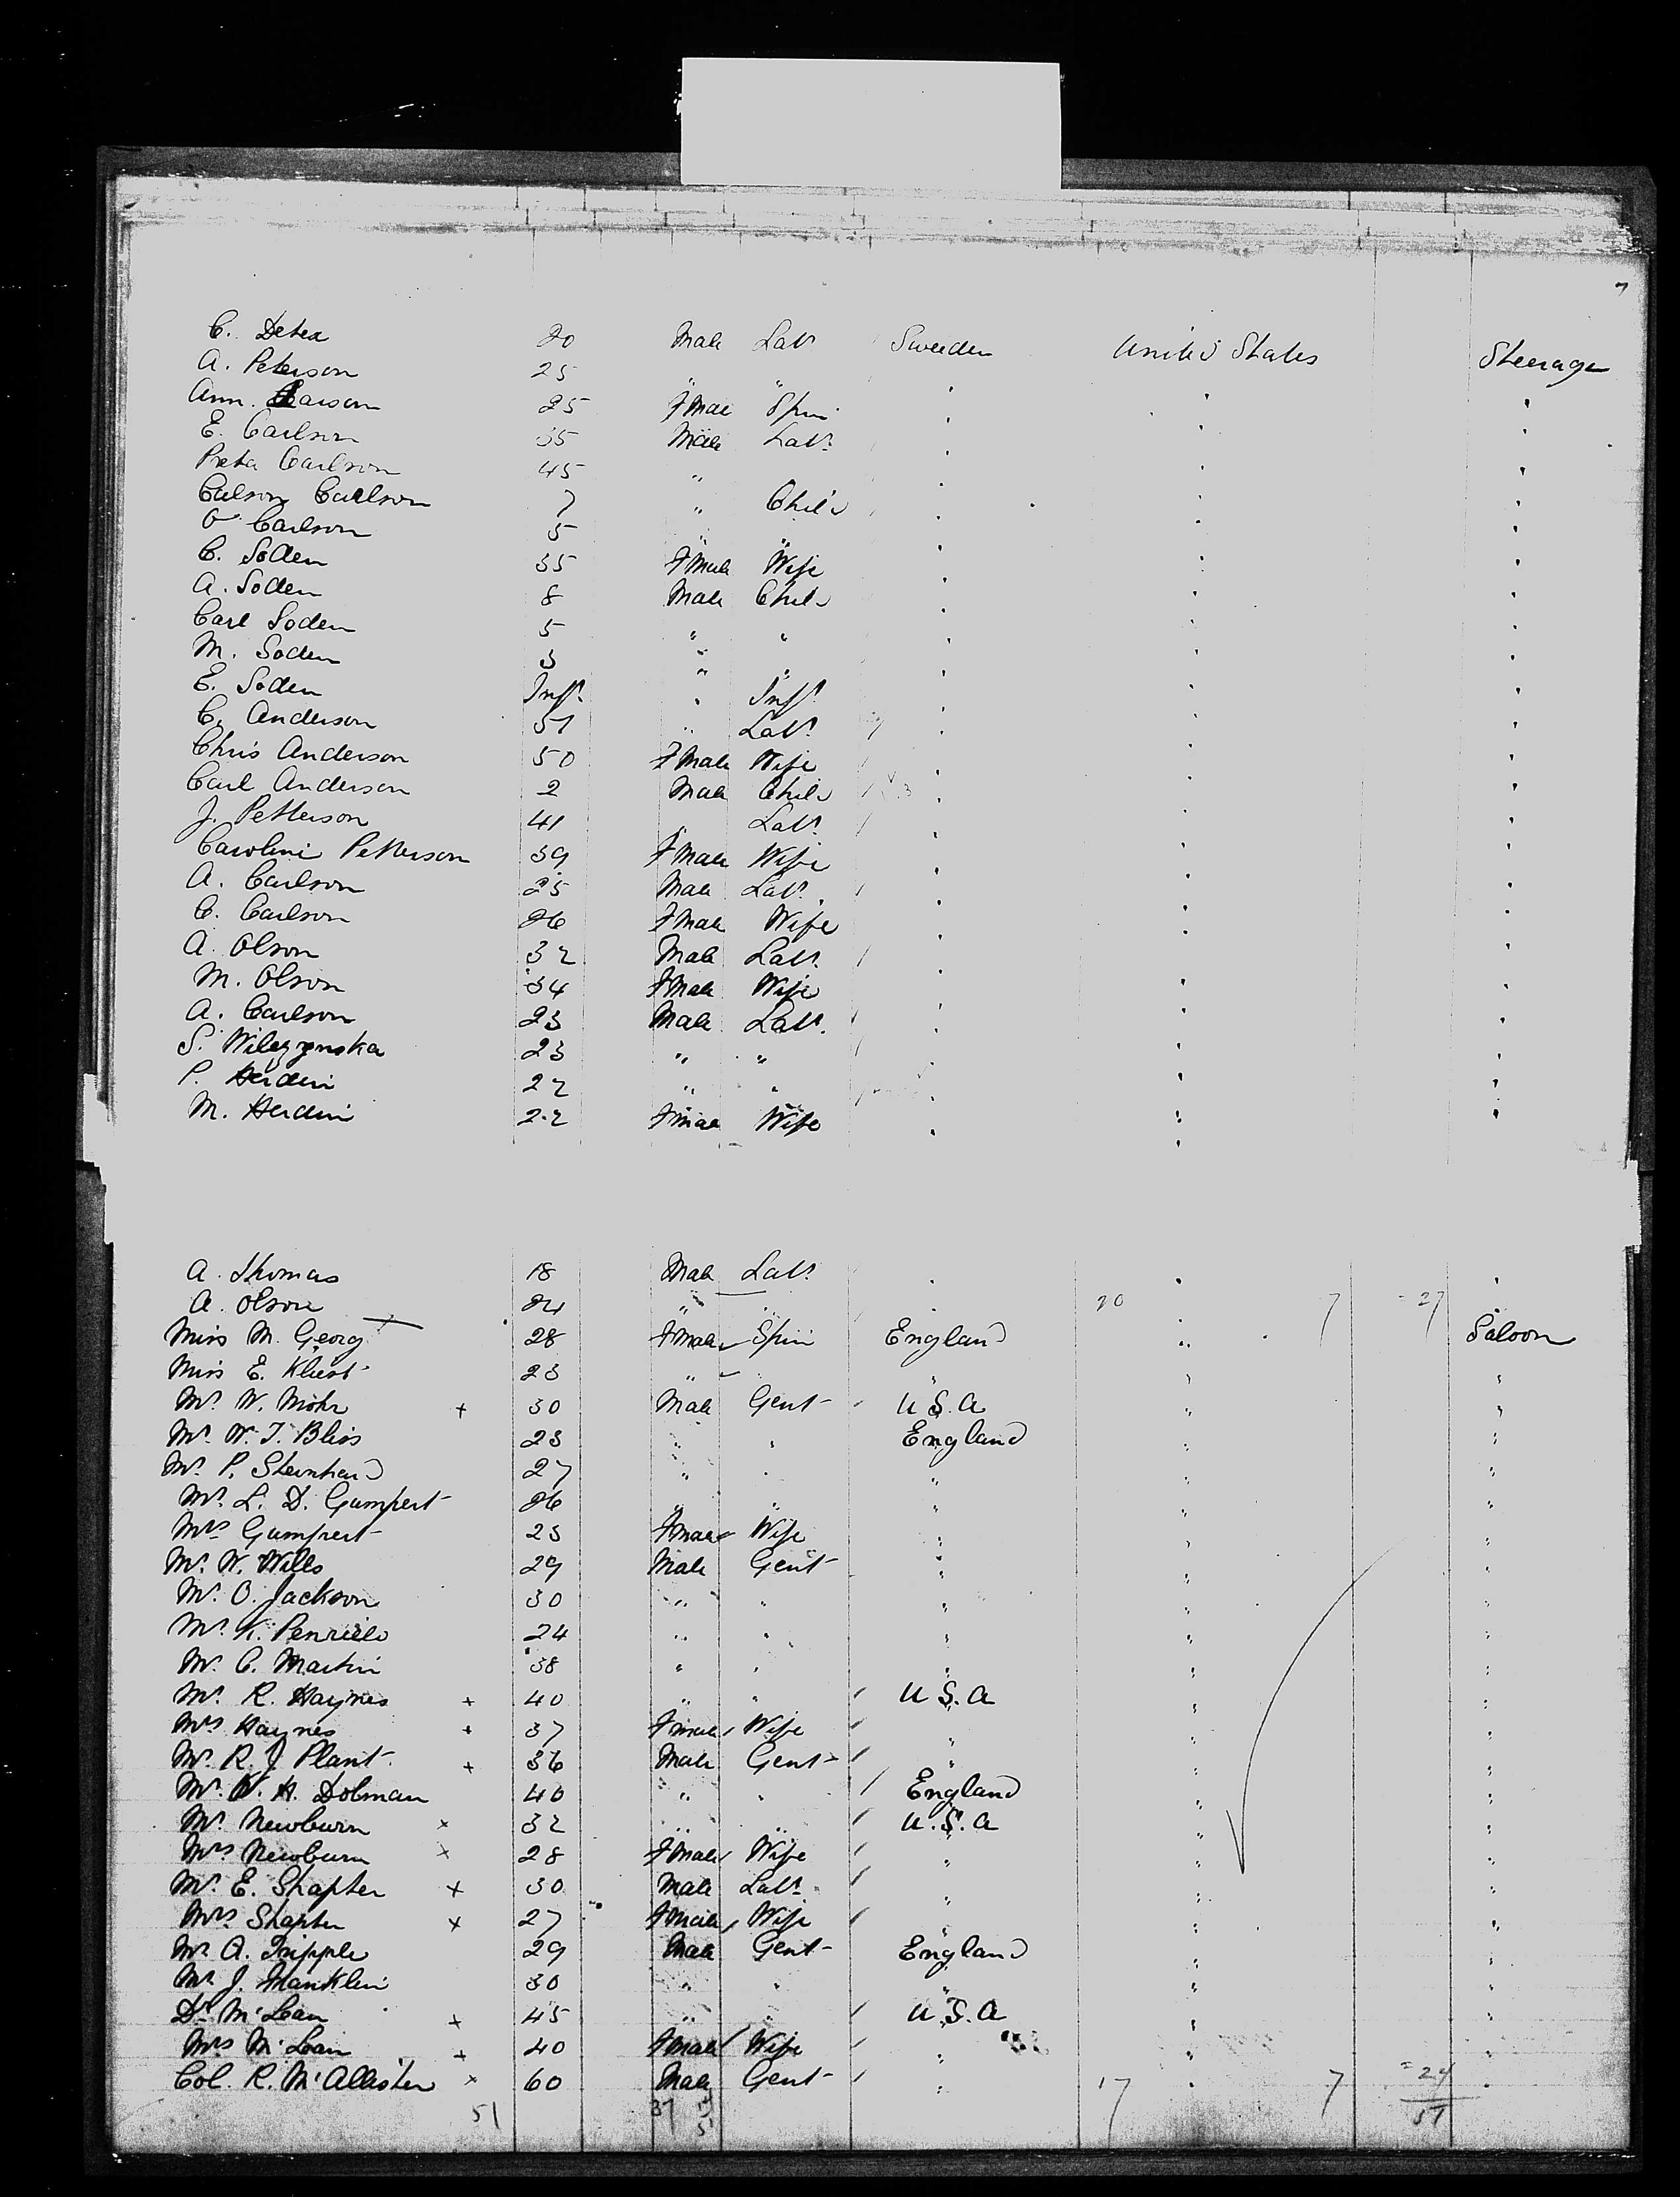 C. Deter 20 Male Labr Sweden United States Steerage
A. Peterson 25 " "
Ann. Larson 25 Fmale Spin " " "
E. Carlson 35 Male Labr " " "
Preta Carlson 45 " " " "
Calson Carlson 7 " Child " " "
O Carlson 5 " " " " "
C. Soden 35 Fmale Wife " " "
A. Soden 8 Male Child " " "
Carl Soden 5 " " " " "
M. Soden 3 " " " " "
E. Soden Inft. " Inft. " " "
C. Anderson 51 " Labr. " " "
Chris Anderson 50 Fmale Wife " " "
Carl Anderson 2 Male Child " " "
J. Petterson 41 " Labr. " " "
Carolini Petterson 39 Fmale Wife " " "
A. Carlson 25 Male Labr. " " "
C. Carlson 26 Fmale Wife " " "
A. Olson 32 Male Labr. " " "
M. Olson 34 Fmale Wife " " "
A. Carlson 23 Male Labr. " " "
S. Wilezynska 23 " " " " "
P. Herdin 22 " " " " "
M. Herdin 22 Fmale Wife " " "
A. Thomas 18 Male Labr. " " "
A. Olson 24 " " " 20 " 7 = 27
Miss M. Georg 28 Fmale Spin England " Saloon
Miss E. Kliest 23 " " " "
Mr. W. Mohr + 30 Male Gent U.S.A " "
Mr. W. T. Bliss 23 " " England " "
Mr. P. Steinhard 27 " " " " "
Mr. L. D. Gumpert 26 " " " " "
Mrs Gumpert 23 Fmale Wife " " "
Mr. W. Wills 29 Male Gent " " "
Mr. O. Jackson 30 " " " " "
Mr. K. Penrield 24 " " " " "
Mr. C. Martin 38 " " " " "
Mr. R. Haynes + 40 " " U.S.A " "
Mrs Haynes + 37 Fmale Wife " " "
Mr. R. J. Plant + 36 Male Gent " " "
Mr. W. H. Dolman 40 " " England " "
Mr. Newburn x 32 " " U.S.A " "
Mrs Newburn x 28 Fmale Wife " " "
Mr. E. Shapter + 30 Male Labr. " " "
Mrs Shapter x 27 Fmale Wife " " "
Mr. A. Tripple 29 Male Gent England " "
Mr. J. Franklin 30 " " " " "
Dr. McLean + 45 " " U.S.A " "
Mrs McLean + 40 Fmale Wife " " "
Col. R. McAllister x 60 Male Gent " 17 " 7 = 24 "
51 37 51